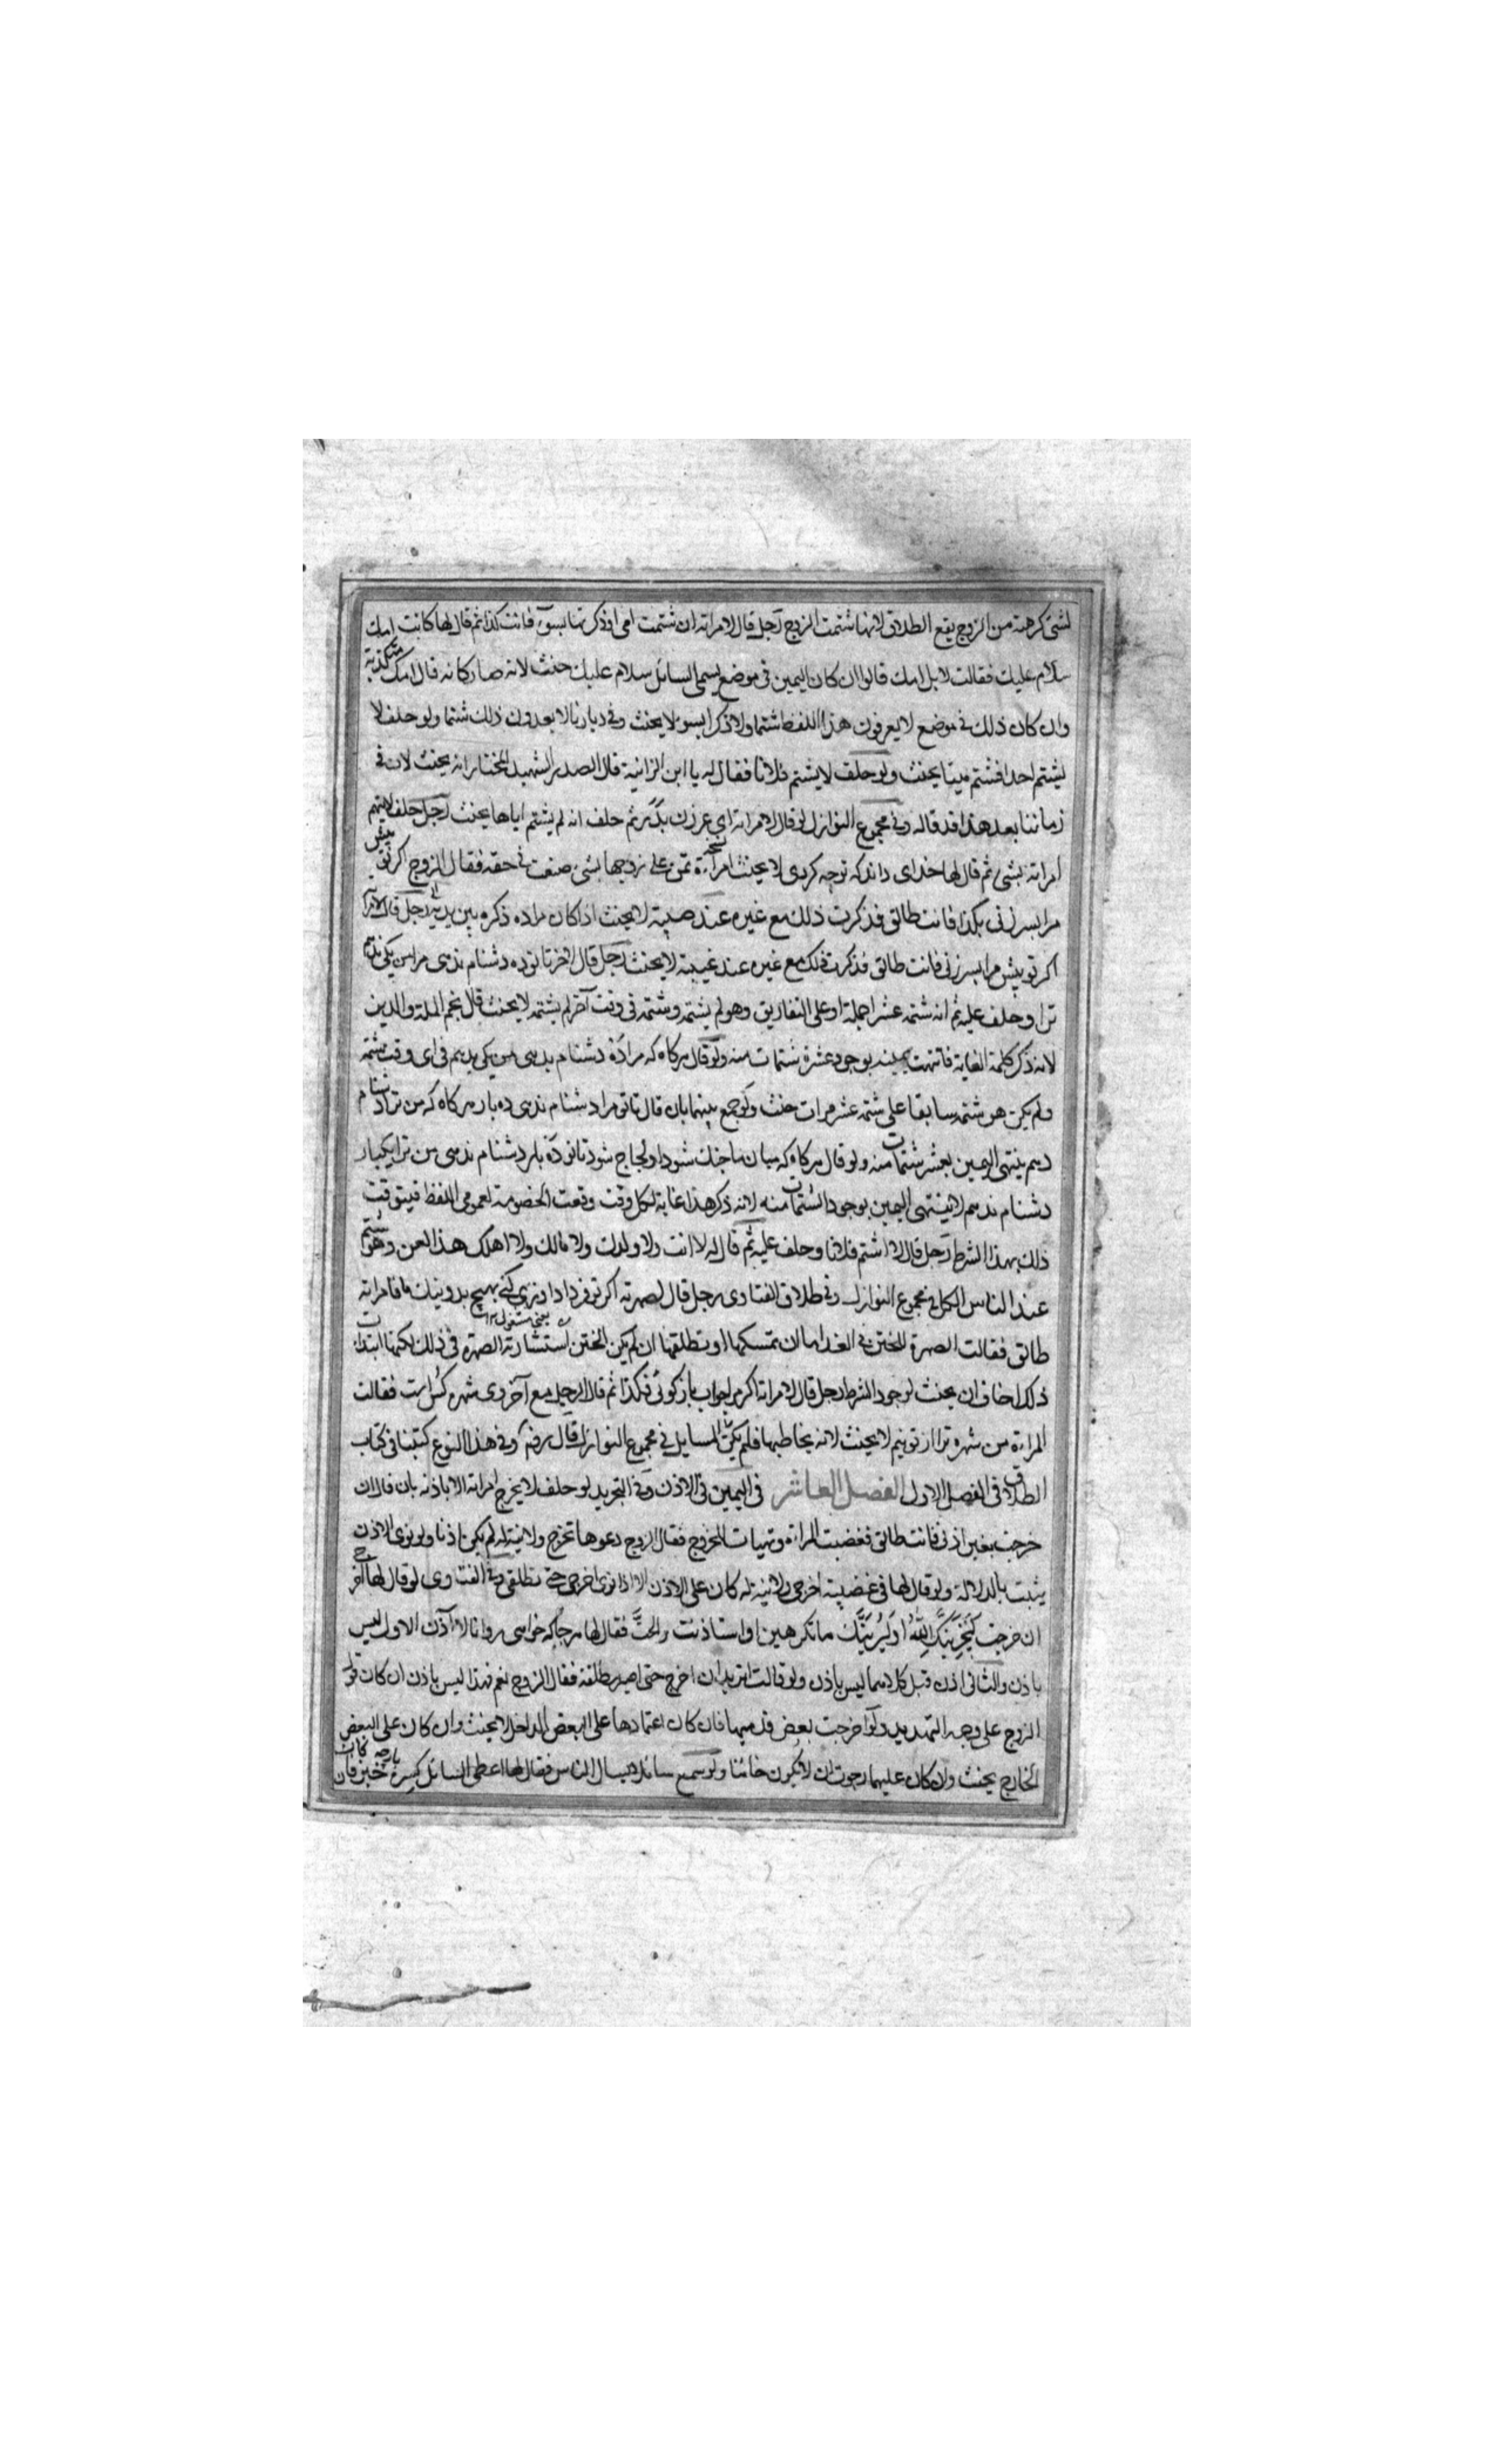 لشئ كرهته من الزوج يقع الطلاق لانها شتمت الزوج رجل قال لامراته ان شتمت امى او ذكرتها بسوء فانت كذا ثم قال لها كانت امك
سلام عليك فقالت لا بل امك قالوا ان كان اليمين فى موضع يسمى السائل سلام عليك حنث لانه صار كانه قال امك مكدية
وان كان ذلك فى موضع لا يعرفون هذا اللفظ شتما ولا ذكرا بسوء لا يحنث وفى ديارنا لا يعدون ذلك شتما ولو حلف لا
يشتم احدا فشتم ميتا يحنث ولو حلف لا يشتم فلانا فقال له يا ابن الزانية قال الصدر الشهيد المختار انه يحنث لان فى
زماننا بعد هذا قد قاله وفى مجموع النوازل لو قال لامراته اى غرزن ثم حلف انه لم يشتم اياها يحنث رجل حلف لا يتهم
امراته بشئ ثم قال لها خداى داند كه تو چه كردى لا يحنث امراءة تمن على زوجها بشئ صنعت فى حقه فقال الزوج اكر تو پيش
مرا بسرزنى بكذا فانت طالق فذكرت ذلك مع غيره عند لا يحنث اذا كان مراده ذكره بين يديه رجل قال لامراته
اكر تو پيش مرا بسرزنى فانت طالق فذكرت ذلك مع غيره عند غيبته لا يحنث رجل قال لاخر تا تو ده دشنام ندهى مرا من يكى ندهم
ترا وحلف عليه ثم انه شتمه عشرا جملة او على التفاريق وهو لم يشتمه وشتمه فى وقت آخر لم يشتمه لا يحنث قال نجم الملة والدين
لانه ذكر كلمة الغاية فانتهت يمينه بوجود عشرة شتمات منه ولو قال هركاه كه مرا ده دشنام بدهى من يكى بدهم فى اى وقت شتمه
ولم يكن هو شتمه سابقا على شتمه عشر مرات حنث ولو جمع بينهما بان قال تا تو مرا دشنام ندهى ده بار هركاه كه من ترا دشنام
دهم ينتهى اليمين بعشر شتمات منه ولو قال هركاه كه ميان ما جنك شود او لجاج شود تا تو ده بار دشنام ندهى من ترا يكبار
دشنام ندهم لا ينتهى اليمين بوجود الشتمات منه لانه ذكر هذا غاية لكل وقت وقعت الخصومة لعموم اللفظ فيتوقت
ذلك بهذا الشرط رجل قال لا اشتم فلانا وحلف عليه ثم قال له لا انت ولا ولدت ولا مالك ولا اهلك هذا لعن وهو شتم
عند الناس الكل فى مجموع النوازل وفى طلاق الفتاوى رجل قال لصهرته اكر تو فردا داورى كنى بهيچ فامراته
طالق فقالت الصهرة للختن فى الغد اما ان تمسكها او تطلقها ان لم يكن الختن استشار الصهرة فى ذلك لكنها ابتدات
ذلك اخاف ان يحنث لوجود الشرط رجل قال لامراته اكر مرا جواب باز كوئى فكذا ثم قال الرجل مع آخر دى شهره كسى است فقالت
المراءة من شهره ترا از تو نيم لا يحنث لانه يخاطبها فلم يكن المسايل فى مجموع النوازل قال رضه وفى هذا النوع كتبنا فى كتاب
الطلاق فى الفصل الاول الفصل العاشر فى اليمين فى الاذن وفى التجريد لو حلف لا يخرج امراته الا باذنه بان قال ان
خرجت بغير اذنى فانت طالق فغضبت المراءة وتهيات للخروج فقال الزوج دعوها تخرج ولا نية له لم يكن اذنا ولو نوى الاذن
يثبت بالدلالة ولو قال لها فى غضبه اخرجى ولا نية له كان على الاذن الا اذا نوى اخرجى حتى تطلقى وفى الفتاوى لو قال لها آخر
ان خرجت ليخزينك الله او ليرينك ما تكرهين او استاذنت فقال لها هرجا كه خواهى رو انا لا آذن الاول ليس
باذن والثانى اذن وقبل كلاهما ليس باذن ولو قالت اتريد ان اخرج حتى اصير مطلقة فقال الزوج نعم فهذا ليس باذن ان كان قول
الزوج على وجه التهديد ولو اخرجت بعض قدميها فان كان اعتمادها على البعض الداخل لا يحنث وان كان على البعض
الخارج يحنث وان كان عليهما رجوت ان لا يكون حانثا ولو سمع سائلا يسال الناس فقال لها اعطى السائل كسرة خبز فان